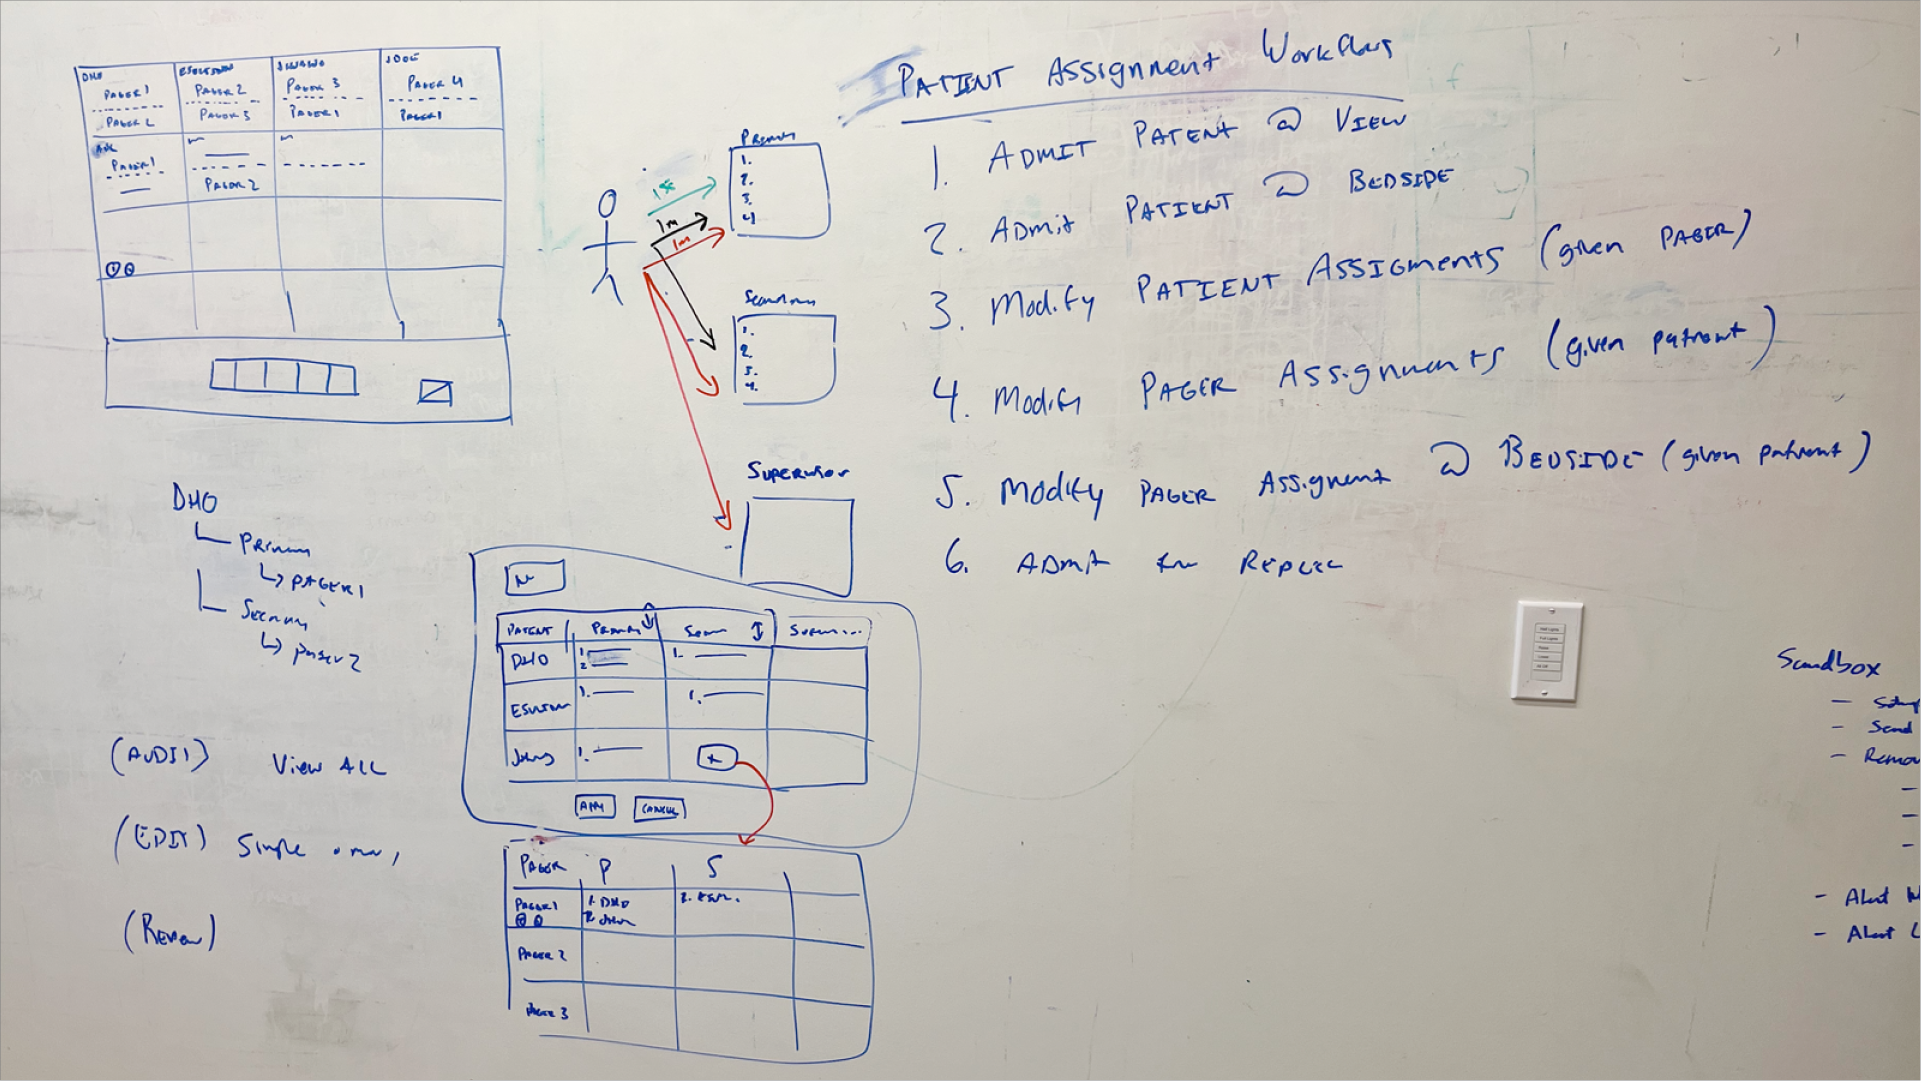 PATIENT Assignment Workflows
1. ADMIT PATENT @ VIEW
2. ADmit PATIENT @ BEDSIDE
3. Modify PATIENT ASSIGMENTS (given PAGER)
4. Modify PAGER Assignments (given patient)
5. Modify PAGER Assignment @ BEDSIDE (given patient)
6. ADmit
DHO
PAGER 1
PAGER 2
PAGER 2
PAGER 3
PAGER 3
PAGER 1
JDOE
PAGER 4
PAGER 1
PAGER 1
PAGER 2
Primary
1.
2.
3.
4.
1m
1m
Secondary
1.
2.
3.
4.
SUPERVISOR
DHO
Primary
PAGER 1
Secondary
pager 2
(AUDIT) View ALL
(EDIT) Single
(Review)
PATENT Primary
DHO 1. 2. 1.
1. 1.
1. +
CANCEL
PAGER P S
PAGER 1 1. DHO
PAGER 2
PAGER 3
Sandbox
- Setup
- Send
- Remov
-
-
-
- Alert
- Alert